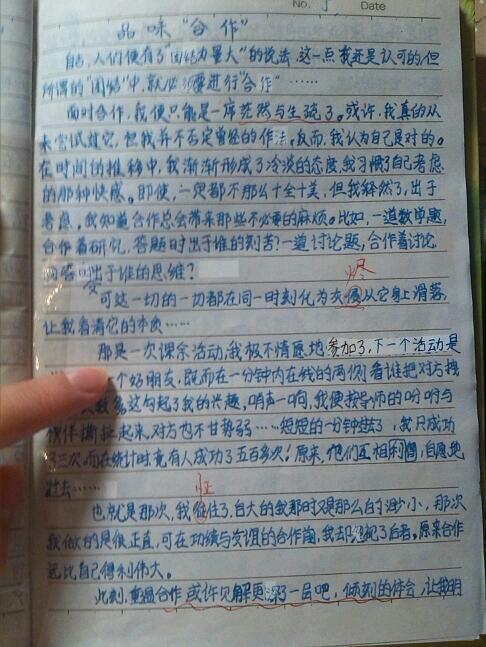 No. 5 Date
品味“合作”
自古,人们便有了“团结力量大”的说法,这一点我还是认可的,但
所谓的“团结”中,就必须要进行“合作”……
面对合作,我便只能是一席茫然与生疏了。或许,我真的从
未尝试过它,但我并不否定曾经的作法。反而,我认为自己是对的。
在时间的推移中,我渐渐形成了冷淡的态度,我习惯了自己考虑
的那种快感。即使,一切都不那么十全十美,但我释然了,出于
考虑,我知道合作总会带来那些不必要的麻烦。比如,一道数学题,
合作着研究,答题时出于谁的刻苦?一道讨论题,合作着讨论,
回答时出于谁的思维?
可这一切的一切都在同一时刻化为灰烬从它身上滑落,
让我看清它的本质……
那是一次课余活动,我极不情愿地参加了,下一个活动是
个好朋友,既而在一分钟内在线的两侧看谁把对方拽
次数多这勾起了我的兴趣,哨声一响,我便教导师的吩咐与
伙伴撕扯起来,对方也不甘势弱……短短的一分钟结束了,我只成功
了三次,而在统计时,竟有人成功了五百多次!原来,他们互相利用,自愿地
过去……
也就是那次,我怔住了,自大的我那时又是那么的渺小,那次
我做的是很正直,可在功绩与友谊的合作面,我却忽视了后者。原来合作
远比自己得利伟大。
此刻,重温合作,或许见解更深了一层吧,倾刻的体会,让我明